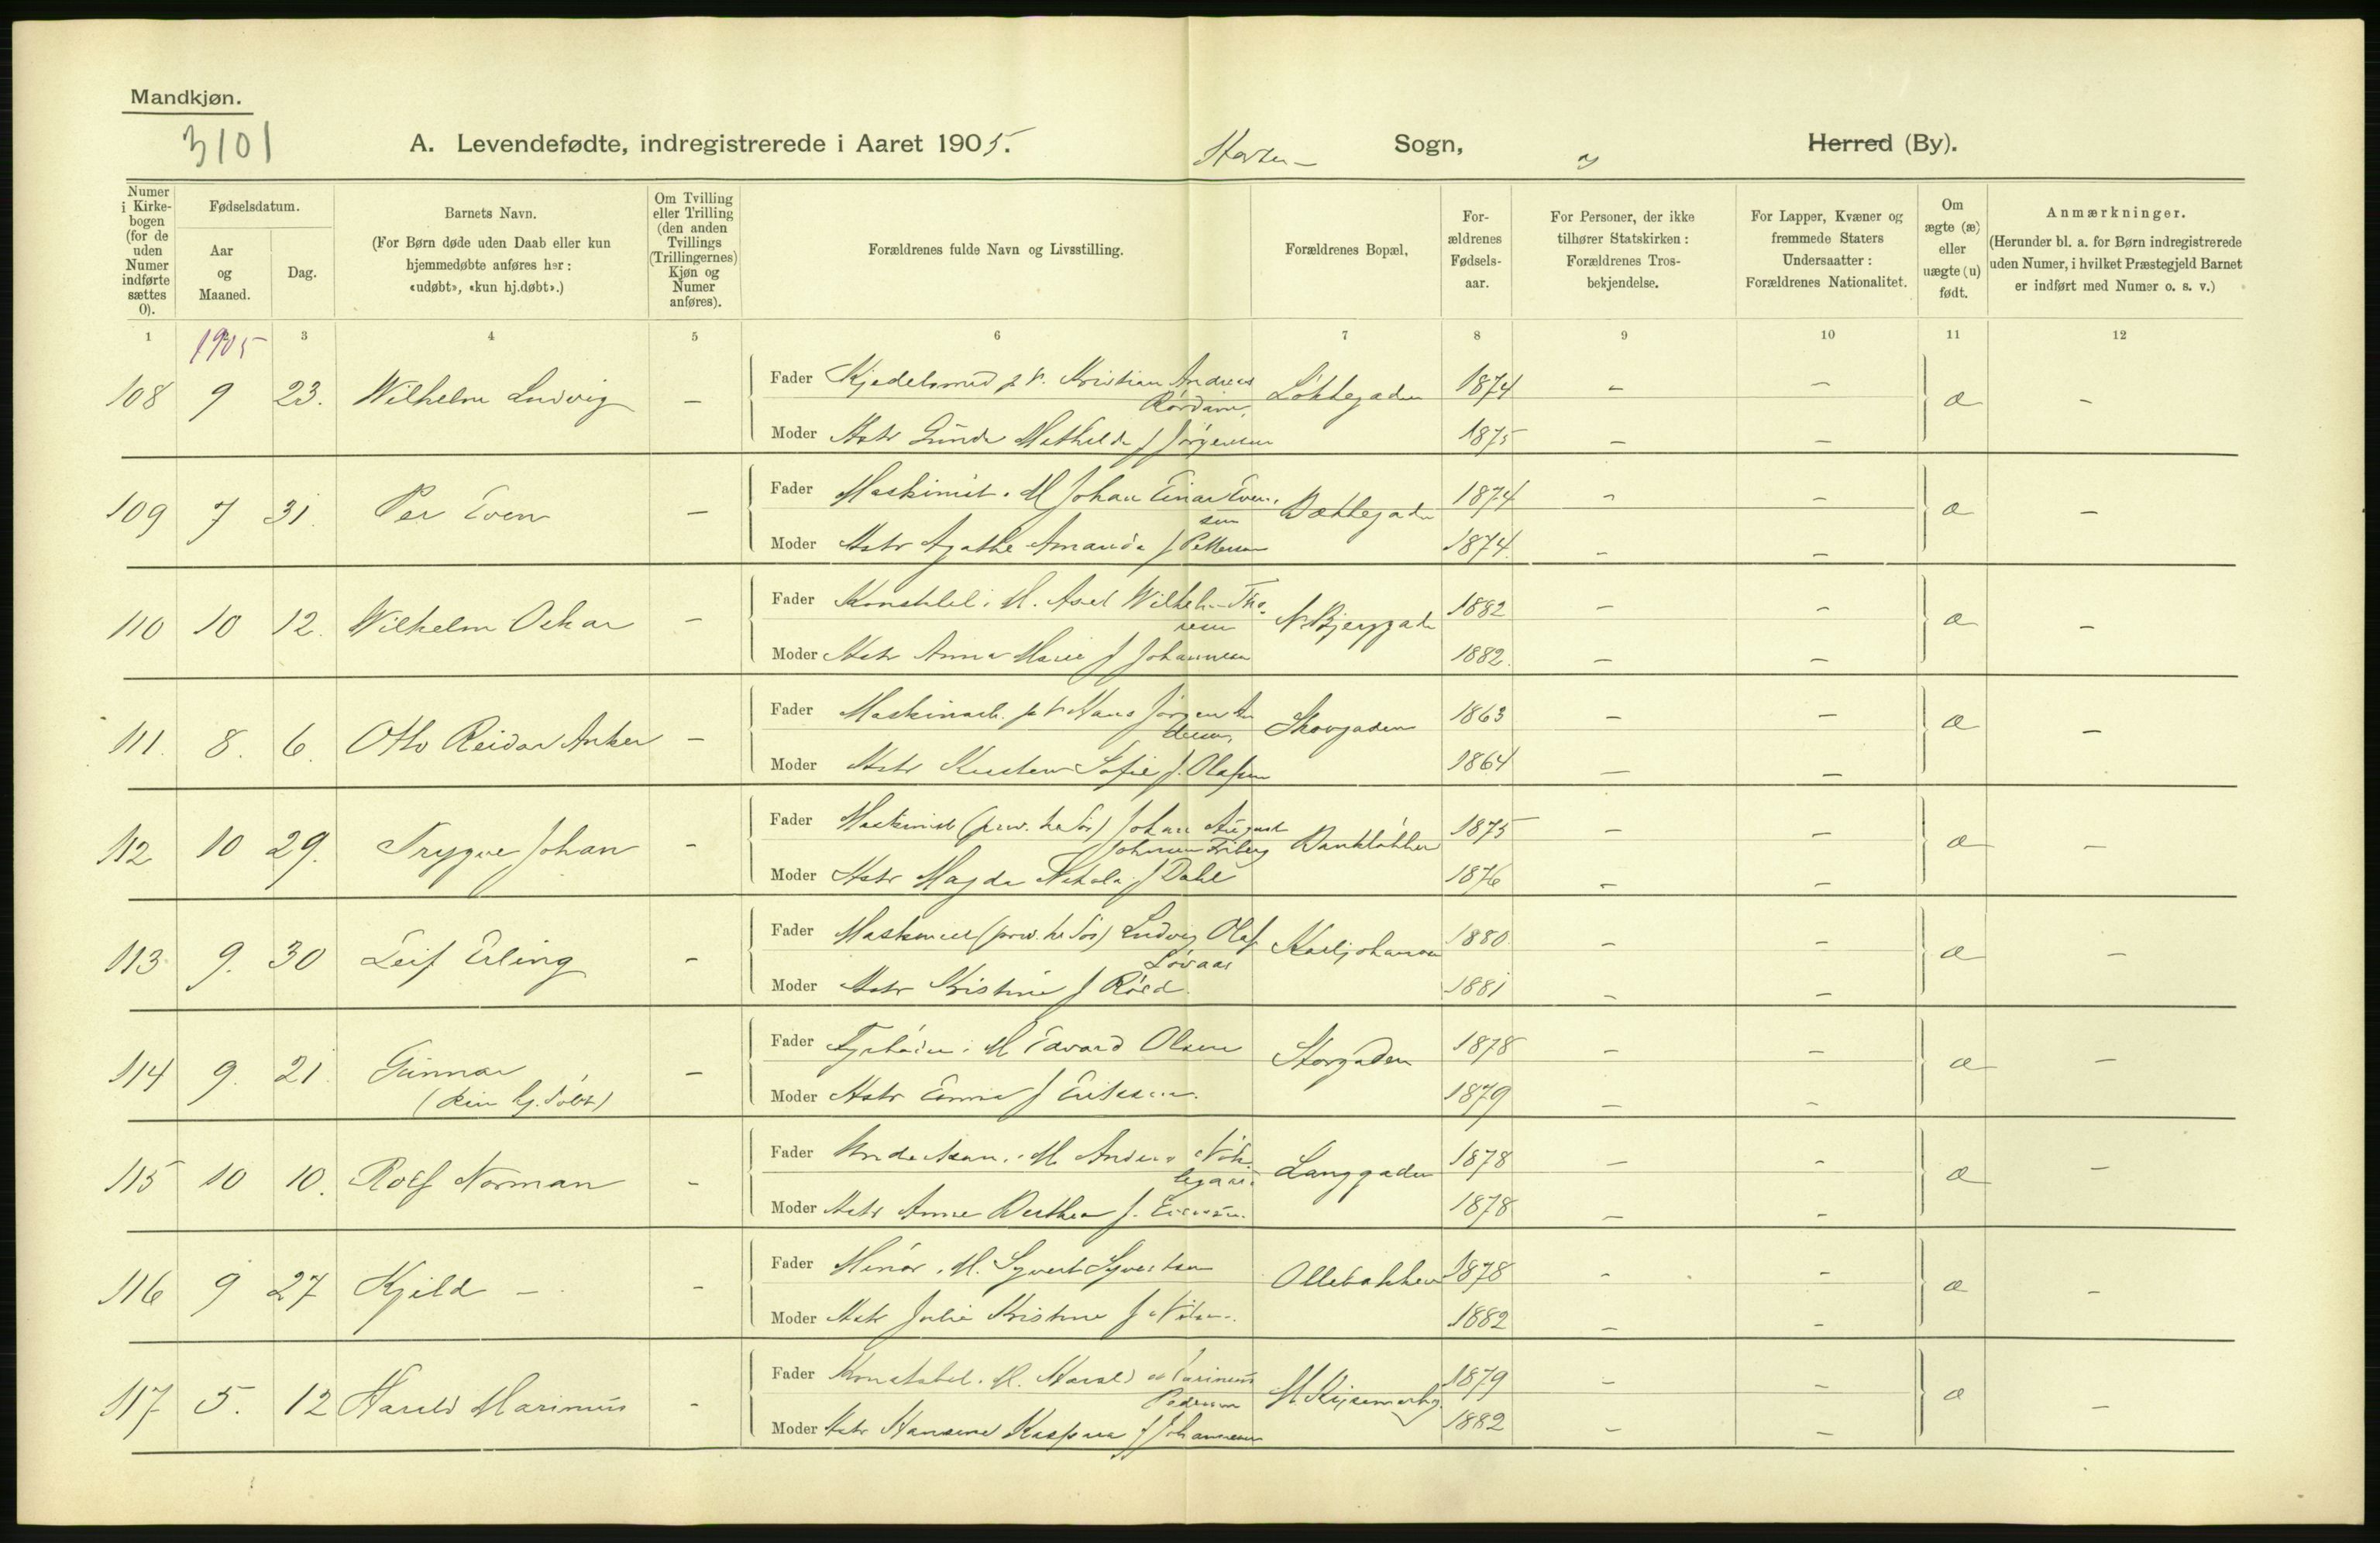 Mandkjøn.
3101
A. Levendefødte, indregistrerede i Aaret 1905. Horten Sogn, Herred (By).
Numer i Kirkebogen (for de uden Numer indførte sættes 0).
Fødselsdatum.
Aar og Maaned.
Dag.
Barnets Navn.
(For Børn døde uden Daab eller kun hjemmedøbte anføres her: «udøbt», «kun hj.døbt».)
Om Tvilling eller Trilling (den anden Tvillings (Trillingernes) Kjøn og Numer anføres).
Forældrenes fulde Navn og Livsstilling.
Forældrenes Bopæl,
Forældrenes Fødselsaar.
For Personer, der ikke tilhører Statskirken: Forældrenes Trosbekjendelse.
For Lapper, Kvæner og fremmede Staters Undersaatter: Forældrenes Nationalitet.
Om ægte (æ) eller uægte (u) født.
Anmærkninger.
(Herunder bl. a. for Børn indregistrerede uden Numer, i hvilket Præstegjeld Barnet er indført med Numer o. s. v.)
1 1905 3 4 5 6 7 8 9 10 11 12
108 9 23. Wilhelm Ludvig - Fader Kjedelsmed p. V. Kristian Andreas Rørdam, Løkkegaden 1874 - - æ -
Moder Hstr Gunda Mathilde f Jørgensen 1875 - -
109 7 31. Per Even - Fader Maskinist. M Johan Einar Evensen 1874 - - æ -
Moder Hstr Agathe Amanda f Pettersen 1874. - -
110 10 12. Wilhelm Oskar - Fader Konstbl. i M. Axel Wilhelm Thoresen N. Bjerggade 1882 - - æ -
Moder Hstr Anna Marie f Johannesen 1882. - -
111. 8. 6. Otto Reidar Anker - Fader Maskinarb. p V Hans Jørgen Andersen, Skovgaden 1863 - - æ -
Moder Hstr Kirsten Sofie f. Olafsen 1864 - -
112 10 29. Trygve Johan - Fader Maskinist (prov. ) Johan August Johnsen Friberg Bankløkken 1875 - - æ -
Moder Hstr Magda f Dahl 1876 - -
113 9. 30 Leif Erling - Fader Maskinist (prov. ) Ludvig Olaf Løvaas Karljohansv 1880 - - æ -
Moder Hstr Kristine f Røed. 1881 - -
114 9. 21. Gunnar - Fader Fyrbøder i M Edvard Olsen Storgaden 1878 - - æ -
(kun hj. døbt) Moder Hstr Emma f Eriksen. 1879 - -
115 10 10. Rolf Norman - Fader M. Anders Langgaden 1878 - - æ -
Moder Hstr Anne Dorthea f. 1878 - -
116 9 27 Kjeld - - Fader Minør. M. Syvert Syvertsen Ollebakken 1878 - - æ -
Moder Hstr Julie Kristine f Nilsen. 1882 - -
117 5. 12 Harald Marinius - Fader Konstabel. M. Harald Marinius Pedersen 1879 - - æ -
Moder Hstr Hansine f Johannesen 1882 - -